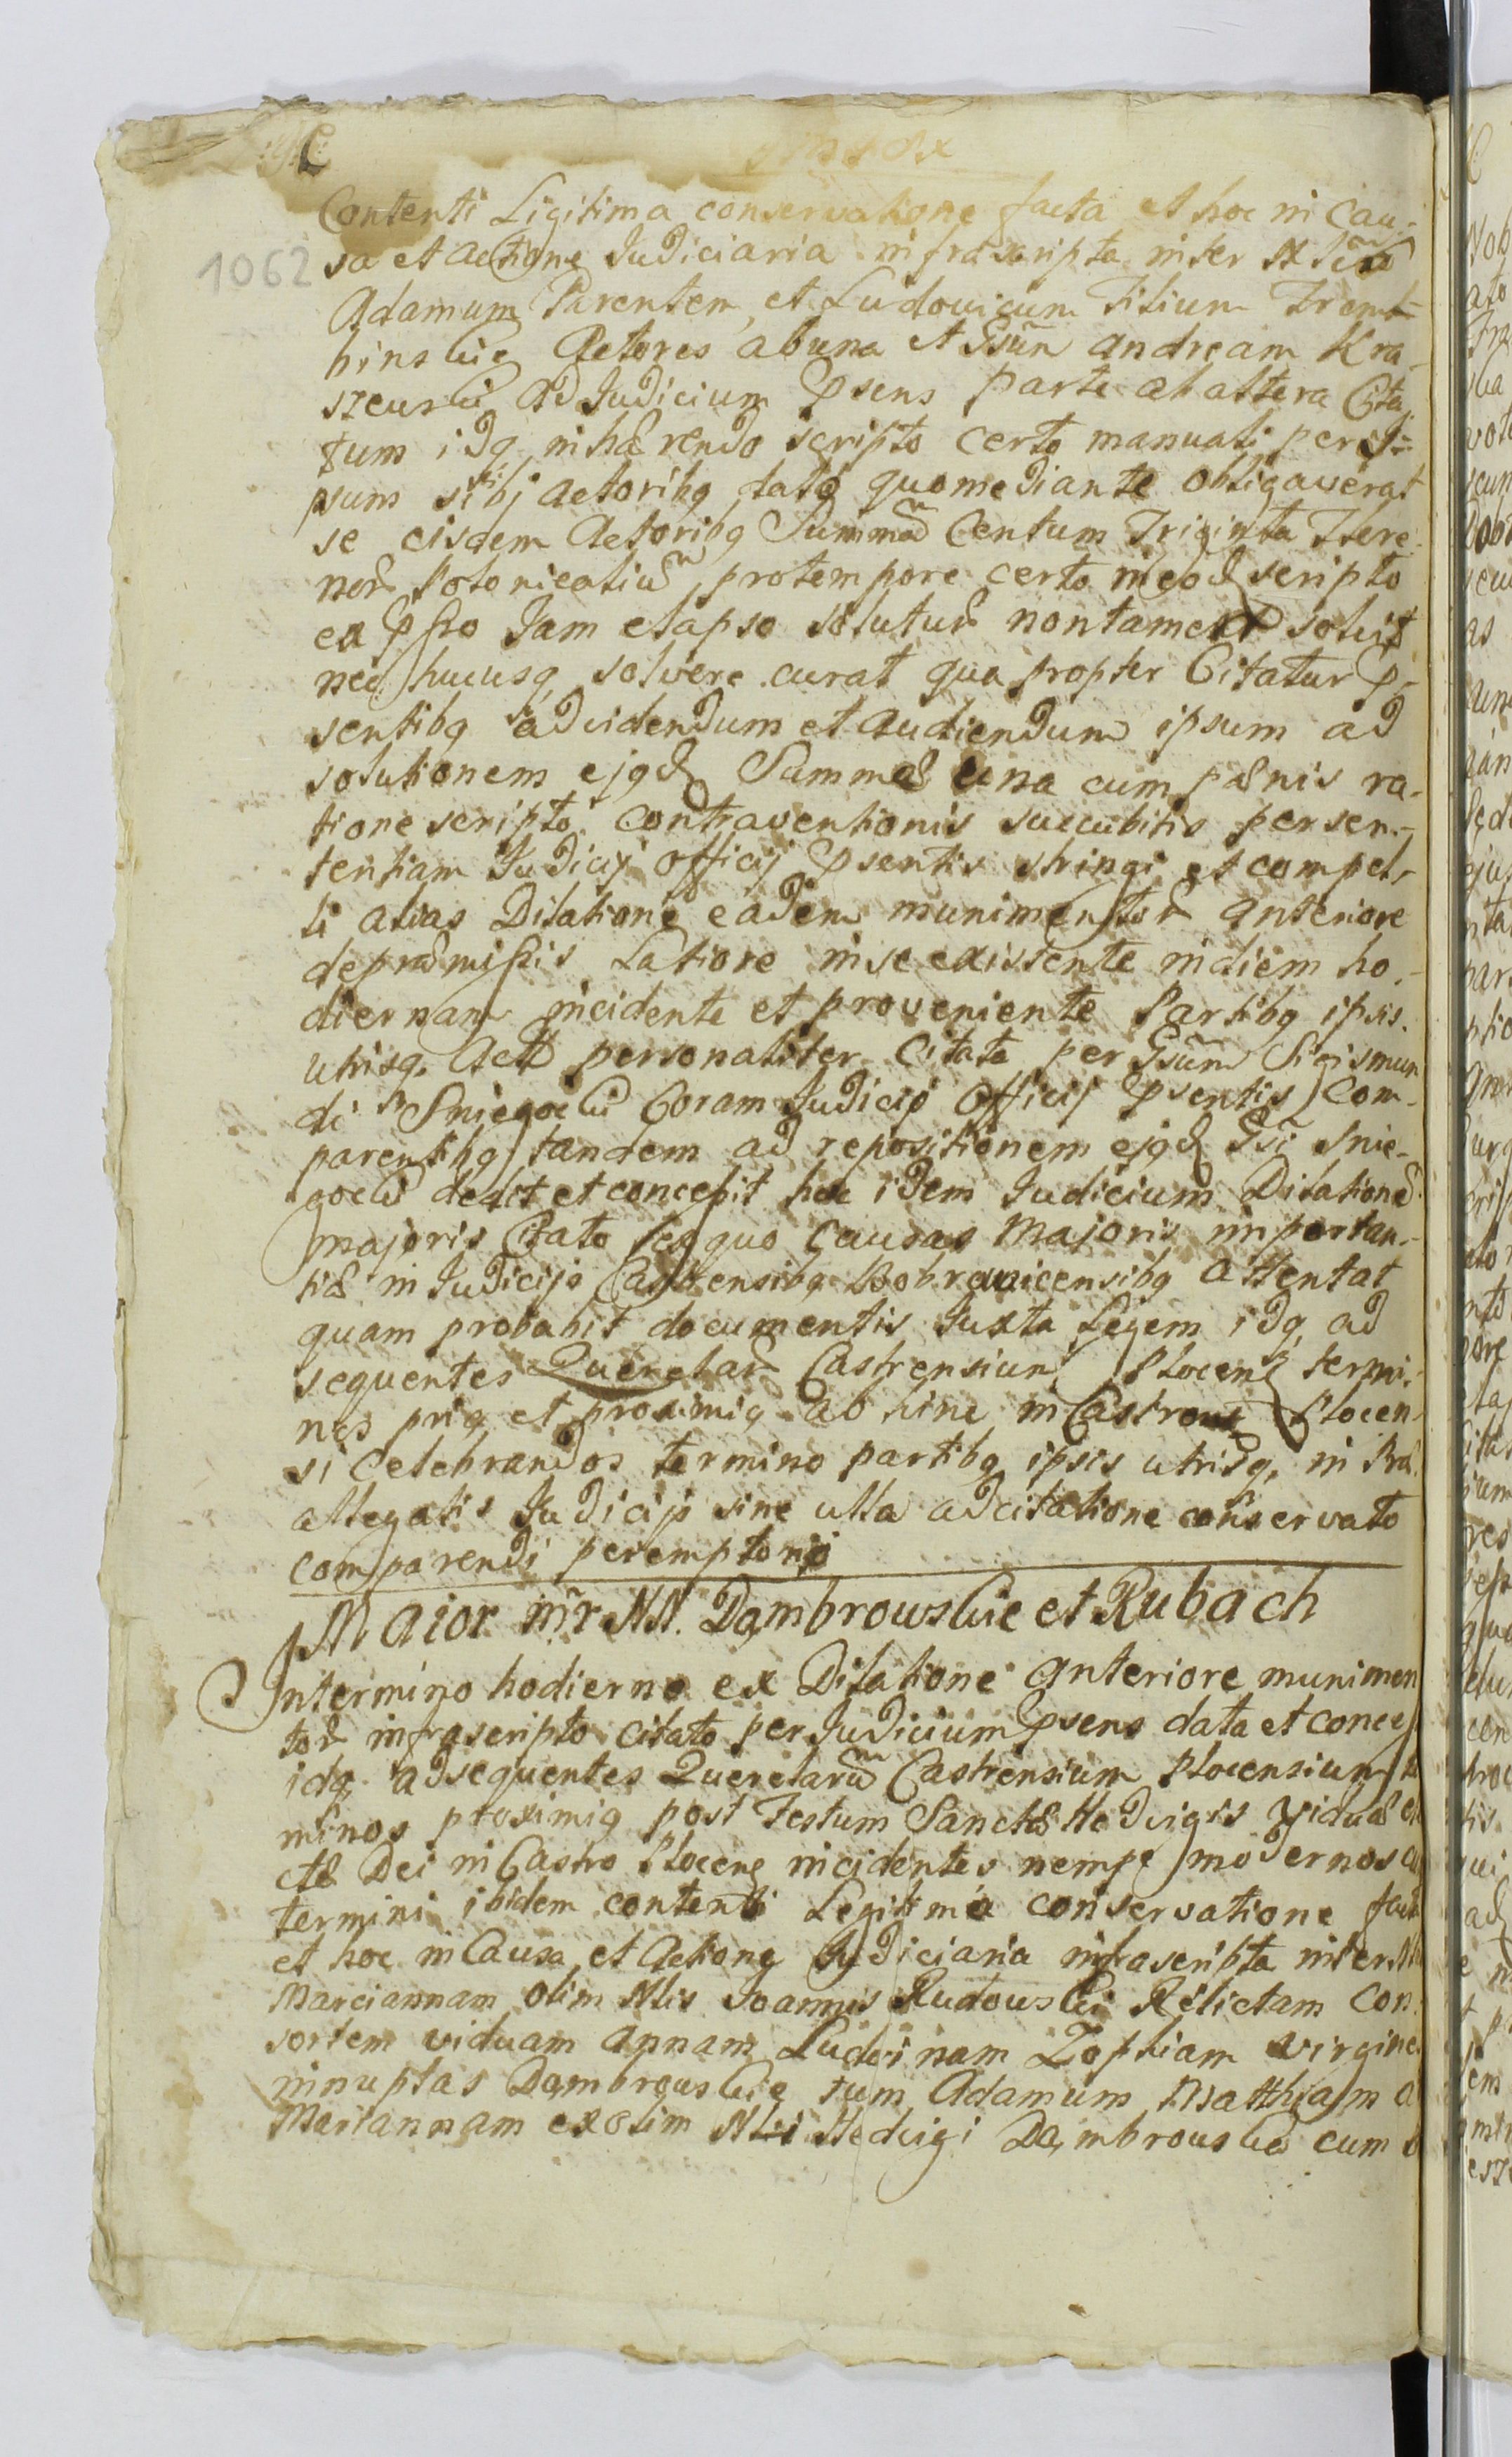 1062
Contenti Legitima conservatione facta et hoc in Cau-
sa et actione Judiciaria infrascripta inter
Adamum Parentem et Ludovicum Filium Tremb-
hinskie Actores ab una et Gsum Andream Kra-
szewski ad Judicium Psens parte ab altera Cita-
tum idq inhærendo scripto certo manuali per i-
psum sibj actoribq dato quomediante obligaverat
se eisdem Actoribq Summã Centum Triginta Flore-
nor Polonicaliũ protempore certo in eod scripto
exPsso Jam elapso solutur nontamen solvit
nec hucusq solvere curat qua propter Citatur P-
sentibq ad videndum et audiendum ipsum ad
solutionem ejqd Summæ una cum pænis ra-
tione scripto contraventionis succubitis per sen-
tentiam Judicij officij Psentis stringi et compel-
li alias Dilatione eadem munimentor anteriore
depræmissis Latiore in se existente in diem ho-
diernam incidente et proveniente Partibq ipsis
utrisq Act personaliter Citata per Gsum Sigismun
di Sniegocki Coram Judicio Officij Psentis Com-
parentibq tandem ad repositionem ejqd Gsi Snie-
gocki dedit et concessit hoc idem Judicium Dilationẽ
majoris Citato ex quo Causas Majoris importan-
tiæ in Judicijs Castrensibq Bobrownicensibq attentat
quam probabit documentis Juxta Legem idq ad
sequentes Querelar Castrensium Plocens termi-
nos priq et proximiq ab hinc in Castro Plocen-
si Celebrandos termino partibq ipsis utrisq in Præ-
allegatis Judicijs sine ulla adcitatione conservato
comparendi peremptorio
Maior intr NN. Dąmbrowskie et Rubach
Intermino hodierno ex Dilatione anteriore munimen
tor infrascripto citato per Judicium Psens data et conces
idq adsequentes Querelarũ Castrensium Plocensium te
minos proximiq post Festum Sanctæ Hedvigis Viduæ
ctæ Dei in Castro Plocens incidentes nempe modernos
termini ibidem contenti Legitima conservatione fact
et hoc in Causa et Actione Judiciaria infrascripta inter
Mariannam olim Nlis Joannis Rudowski Relictam Con-
sortem viduam Annam Ludvinam Zophiam virgine
innuptas Dąmbrowskie tum Adamum Matthiam
Mariannam ex olim Nli Hedvigi Dąmbrowska cum